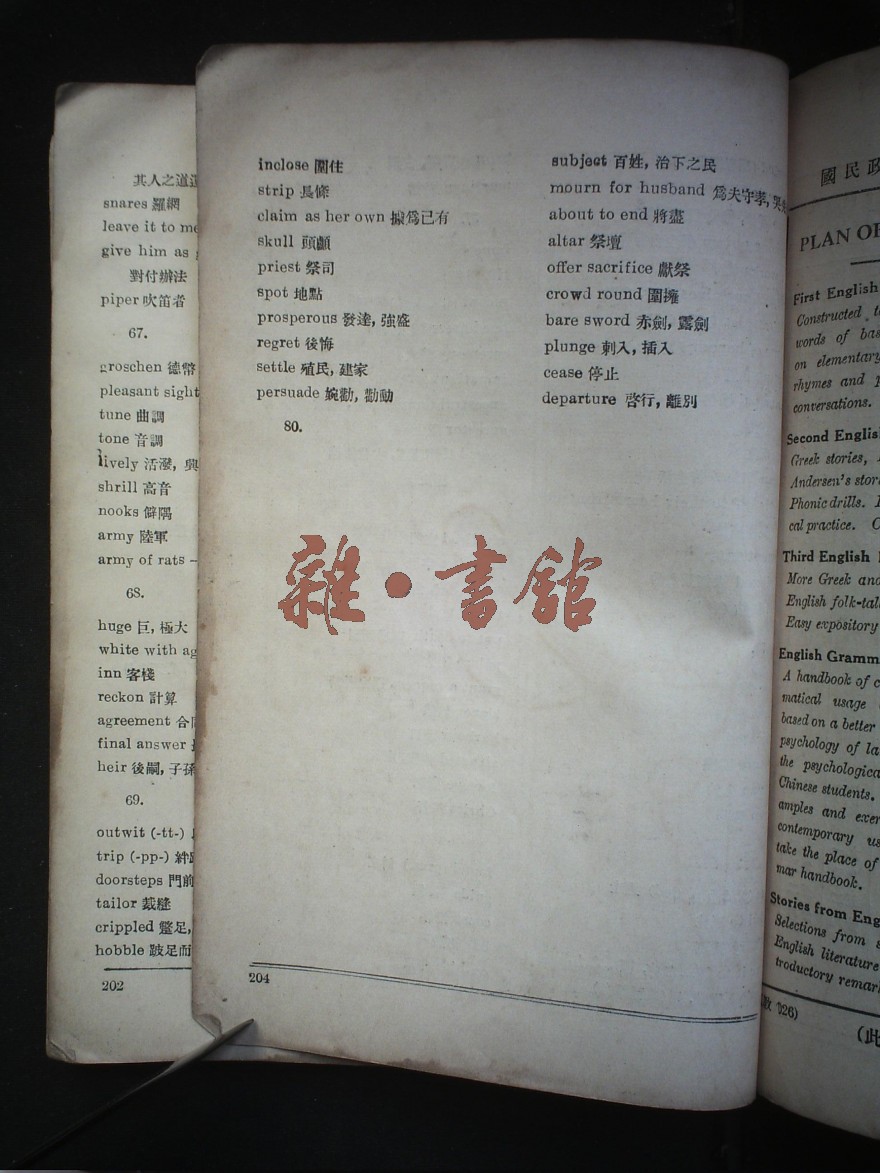 其人之道還
snares 羅網
leave it to me
give him as
對付辦法
piper 吹笛者
67.
groschen 德幣
pleasant sight
tune 曲調
tone 音調
lively 活潑, 興
shrill 高音
nooks 僻隅
army 陸軍
army of rats
68.
huge 巨, 極大
white with ag
inn 客棧
reckon 計算
agreement 合同
final answer
heir 後嗣, 子孫
69.
outwit (-tt-)
trip (-pp-) 絆跌
doorsteps 門前
tailor 裁縫
crippled 蹩足,
hobble 跛足而
202
inclose 圍住
strip 長條
claim as her own 據爲已有
skull 頭顱
priest 祭司
spot 地點
prosperous 發達, 強盛
regret 後悔
settle 殖民, 建家
persuade 婉勸, 勸動
80.
subject 百姓, 治下之民
mourn for husband 爲夫守孝, 哭
about to end 將盡
altar 祭壇
offer sacrifice 獻祭
crowd round 圍擁
bare sword 赤劍, 露劍
plunge 刺入, 插入
cease 停止
departure 啓行, 離別
雜·書館
204
國民政
PLAN OF
First English
Constructed to
words of bas
on elementary
rhymes and p
conversations.
Second English
Greek stories,
Andersen's stori
Phonic drills.
cal practice. C
Third English
More Greek and
English folk-tal
Easy expository
English Gramm
A handbook of c
matical usage
based on a better
psychology of la
the psychologica
Chinese students.
amples and exer
contemporary us
take the place of
mar handbook.
Stories from Eng
Selections from s
English literature
troductory remar
026)
(此